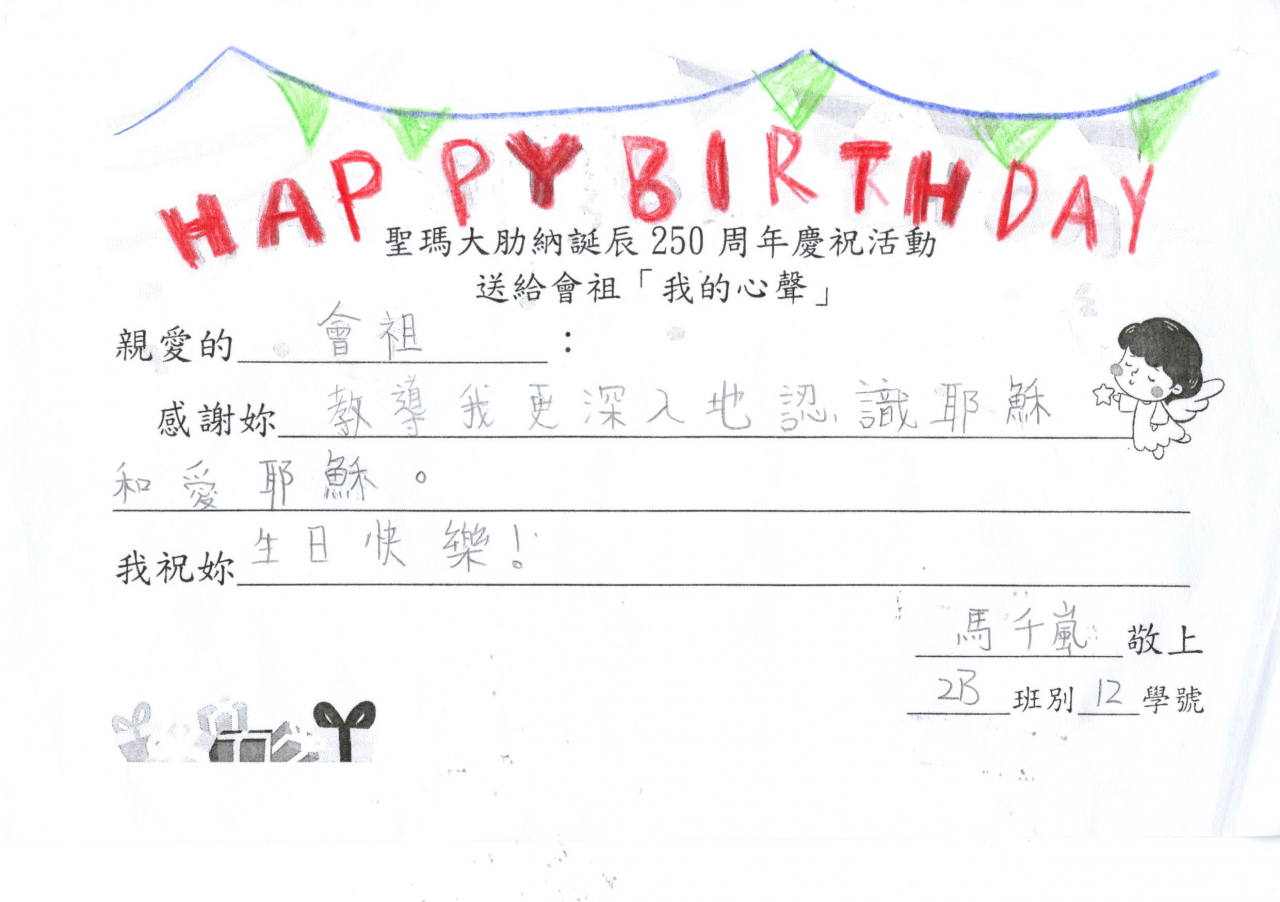 HAPPY BIRTHDAY
聖瑪大肋納誕辰 250 周年慶祝活動
送給會祖「我的心聲」
親愛的 會祖 :
感謝妳 教導我更深入地認識耶穌
和愛耶穌。
我祝妳 生日快樂!
馬千嵐 敬上
2B 班別 12 學號